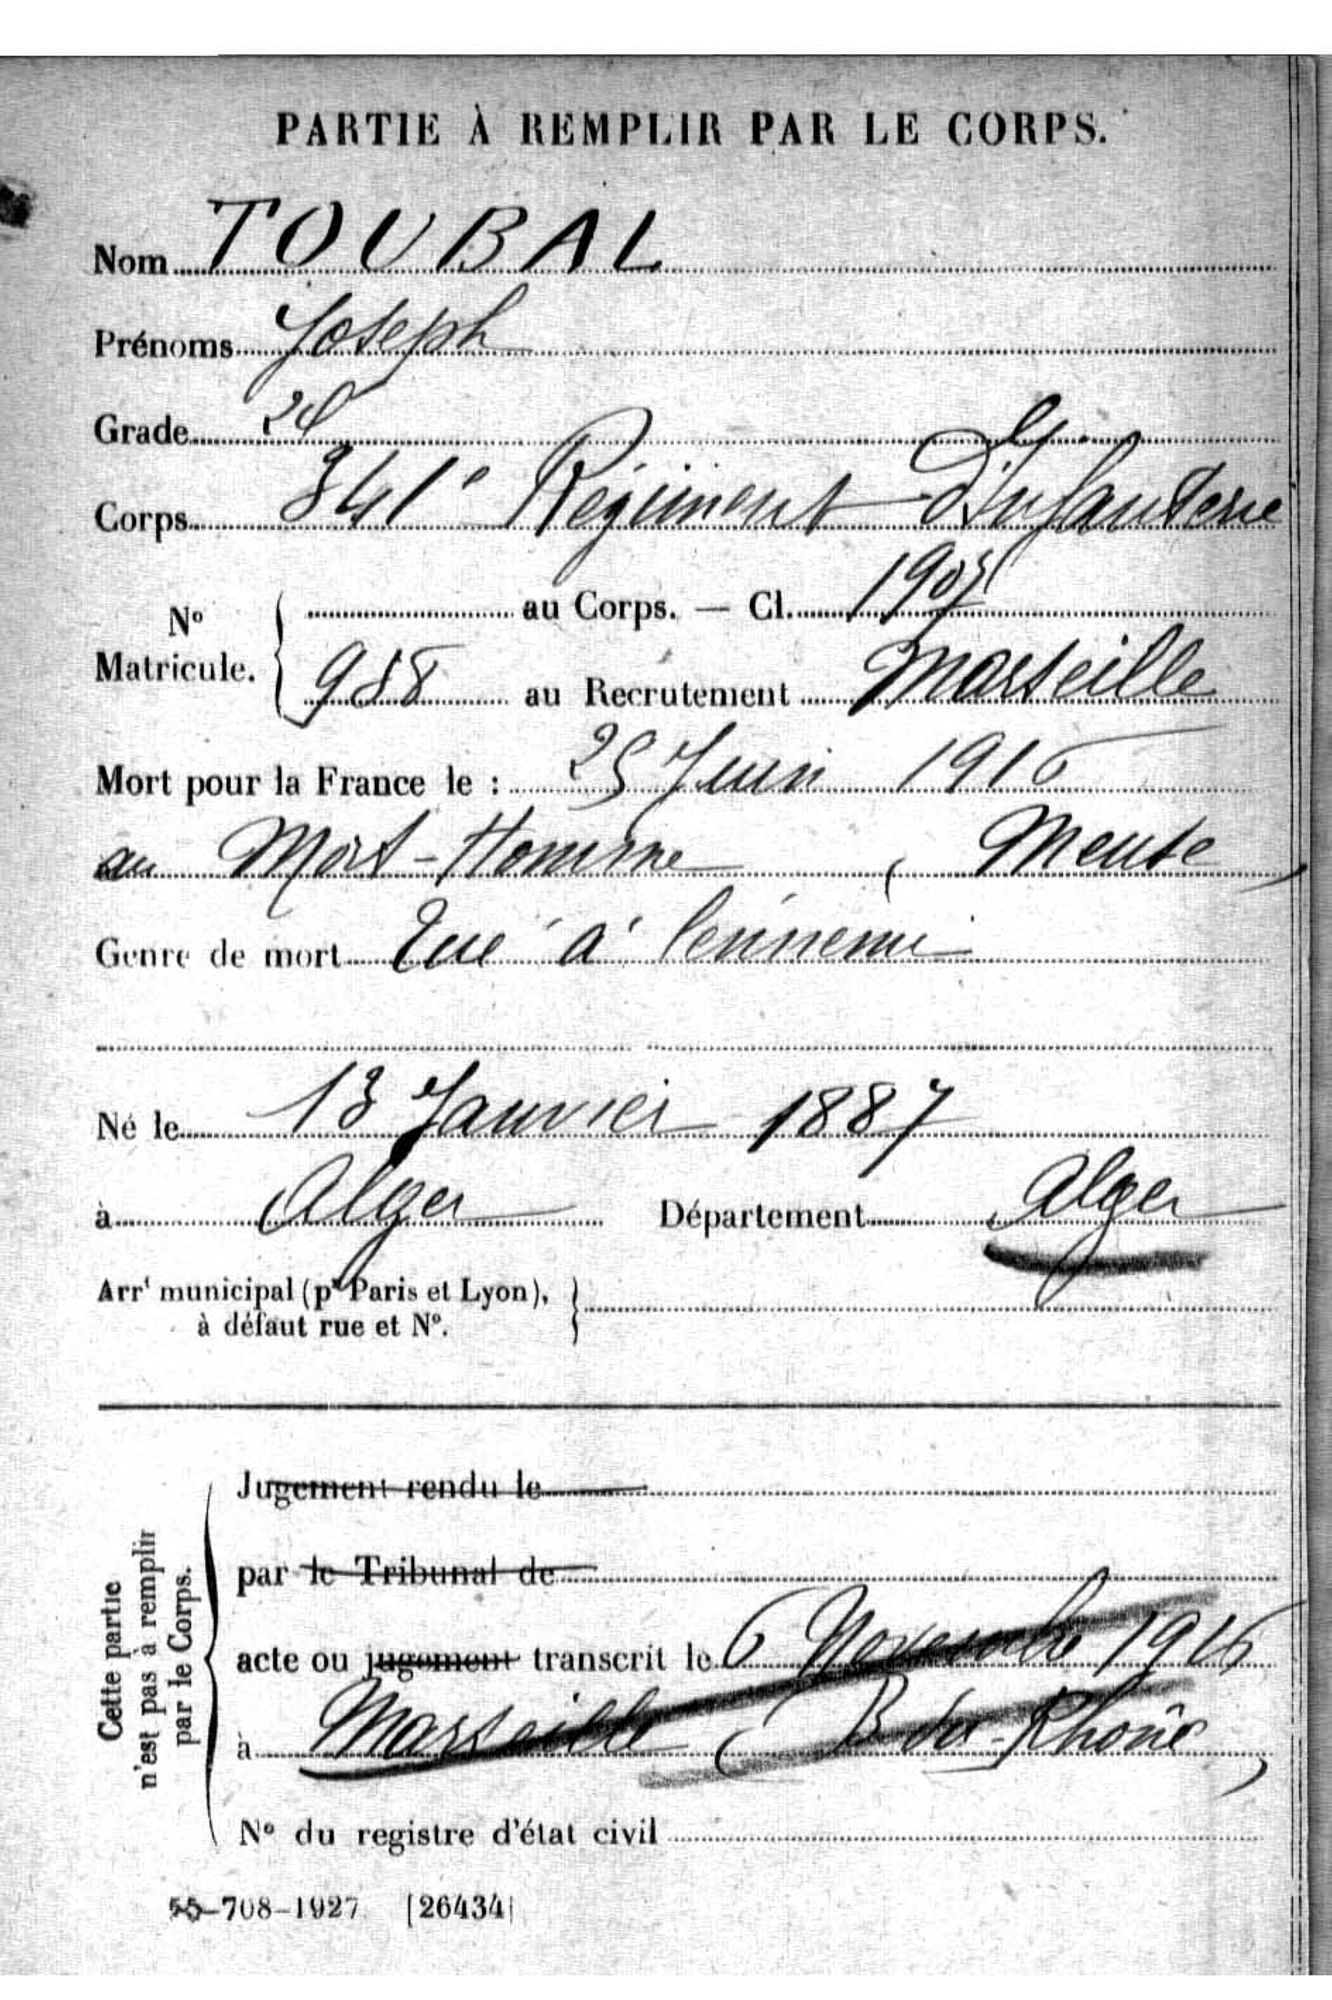 PARTIE À REMPLIR PAR LE CORPS.
Nom TOUBAL
Prénoms Joseph
Grade 2e
Corps 341e Régiment D'Infanterie
No Matricule. { au Corps. — Cl. 1907
988 au Recrutement Marseille
Mort pour la France le : 25 Juin 1916
au Mort-Homme ( Meuse )
Genre de mort Tué à l'ennemi
Né le 13 Janvier 1887
à Alger Département Alger
Arrt municipal (pr Paris et Lyon),
à défaut rue et No.
Cette partie
n'est pas à remplir
par le Corps.
Jugement rendu le
par le Tribunal de
acte ou jugement transcrit le 6 Novembre 1916
à Marseille ( B du Rhône )
No du registre d'état civil
708-1927. [26434]